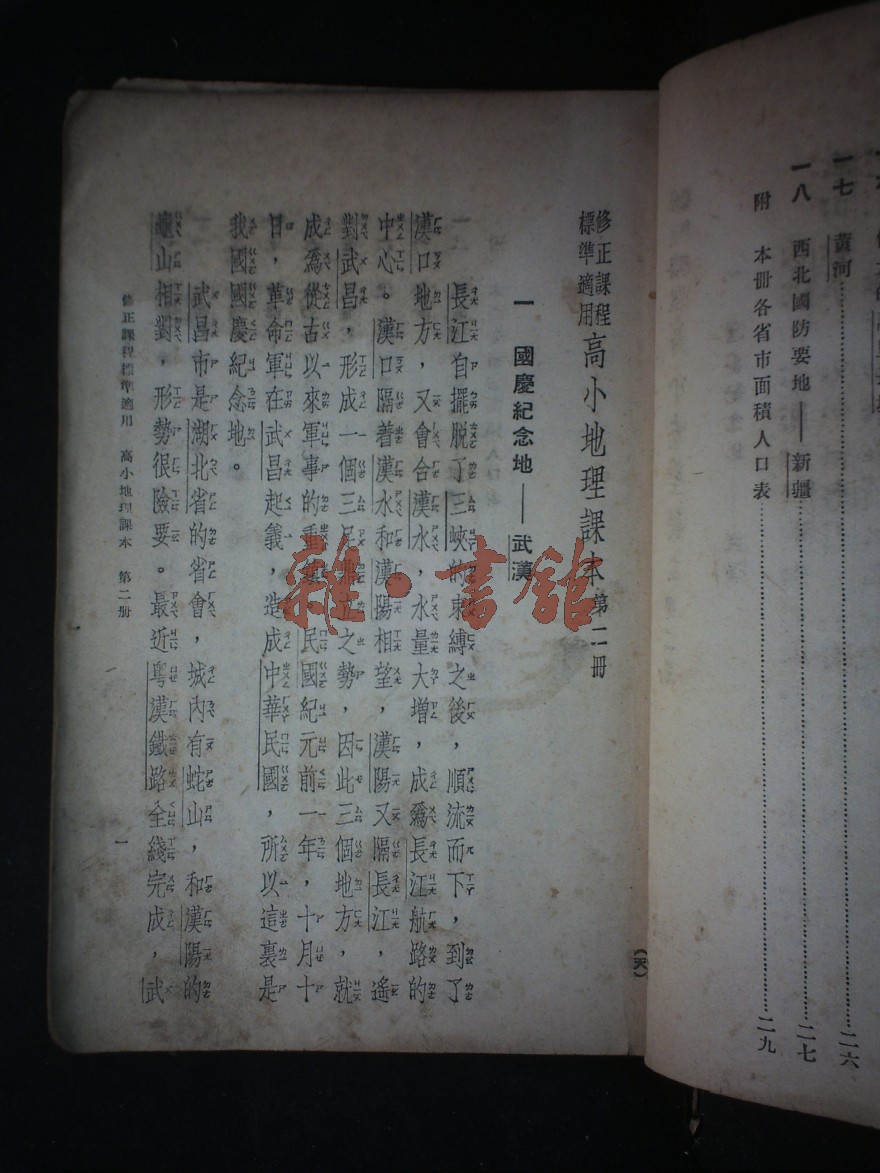 一七　黃河……二六
一八　西北國防要地——新疆……二七
附　本册各省市面積人口表……二九
(天)
修正課程
標準適用
高小地理課本第二冊
一　國慶紀念地——武漢
長江自擺脫了三峽的束縛之後，順流而下，到了
漢口地方，又會合漢水，水量大增，成爲長江航路的
中心。漢口隔着漢水和漢陽相望，漢陽又隔長江，遙
對武昌，形成一個三足鼎立之勢，因此三個地方，就
成爲從古以來軍事的重 民國紀元前一年，十月十
日，革命軍在武昌起義，造成中華民國，所以這裏是
我國國慶紀念地。
武昌市是湖北省的省會，城內有蛇山，和漢陽的
龜山相對，形勢很險要。最近粤漢鐵路全綫完成，武
修正課程標準適用　高小地理課本　第二册
一
雜·書館